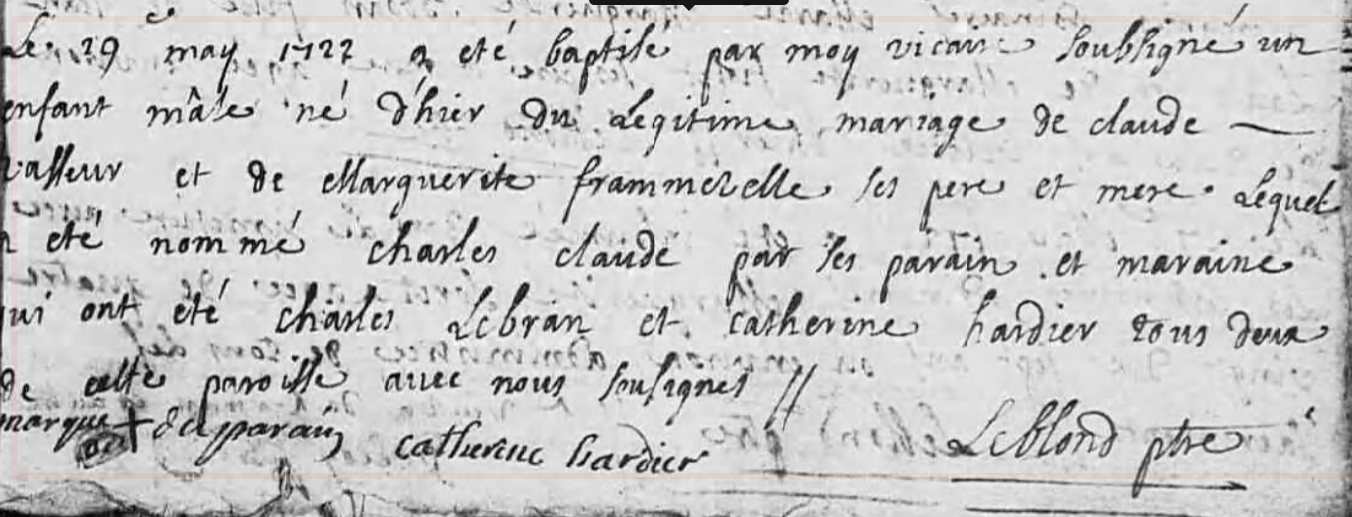 Le 29 may 1722 a eté baptisé par moy vicaire soubsigné un
enfant mâle né d'hier du Legitime mariage de claude
vasseur et de Marguerite frammezelle ses pere et mere Lequel
a eté nommé charles claude par ses parain et maraine
qui ont été charles Lebran et catherine hardier tous deux
de cette paroisse avec nous sousignes //
marque + du parain catherine hardier Leblond ptre